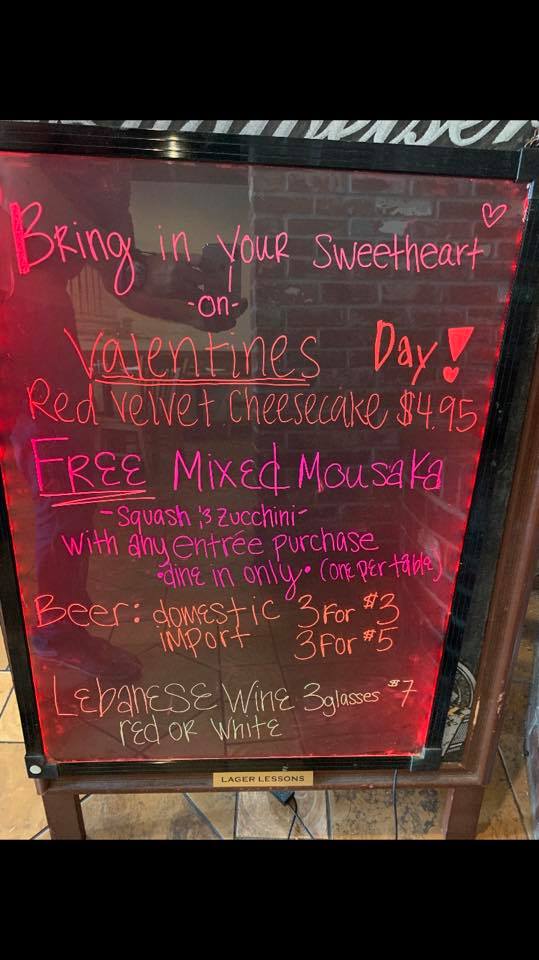 Bring in your Sweetheart
-on-
Valentines Day!
Red Velvet Cheesecake $4.95
FREE Mixed Mousaka
-Squash & Zucchini-
with any entrée purchase
•dine in only• (one per table)
Beer: domestic 3 For $3
import 3 For $5
Lebanese Wine 3 glasses $7
red or white
LAGER LESSONS